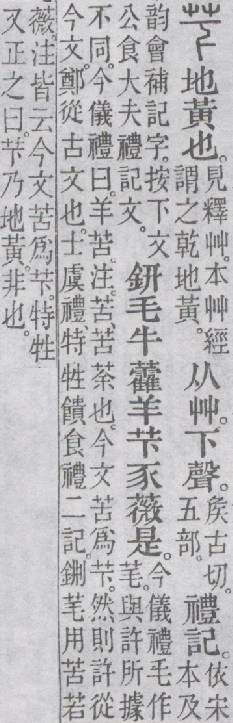 芐地黃也。見釋艸。本艸經謂之乾地黃。从艸。下聲。矦古切。五部。禮記。依宋本及
韵會補記字。按下文公食大夫禮記文。鈃毛牛藿羊芐豕薇是。今儀禮毛作芼。與許所據
不同。今儀禮曰。羊苦。注。苦、苦荼也。今文苦爲芐。然則許從
今文。鄭從古文也。士虞禮特牲饋食禮二記。鉶芼用苦若
薇。注皆云今文苦爲芐。特牲
又正之曰。芐乃地黃。非也。